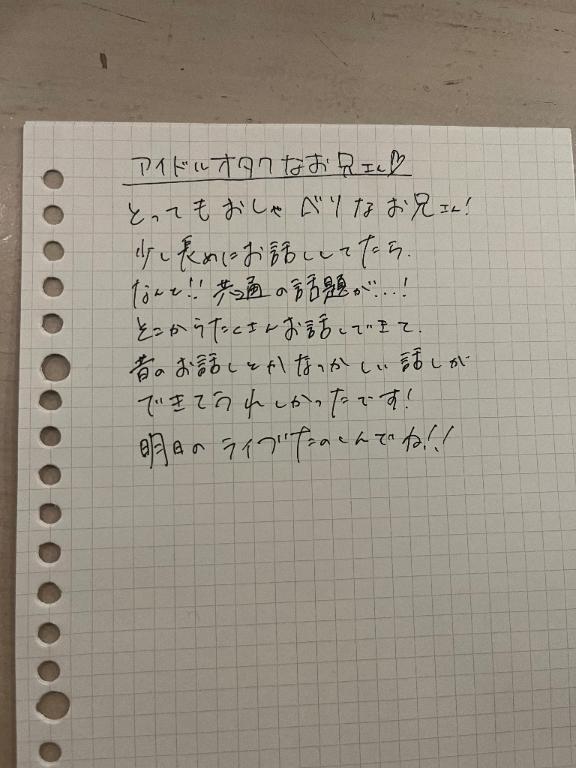 アイドルオタクなお兄さん♡
とってもおしゃべりなお兄さん!
少し長めにお話ししてたら、
なんと!!共通の話題が...!
そこからたくさんお話しできて、
昔のお話しとかなつかしい話しが
できてうれしかったです!
明日のライブたのしんでね!!